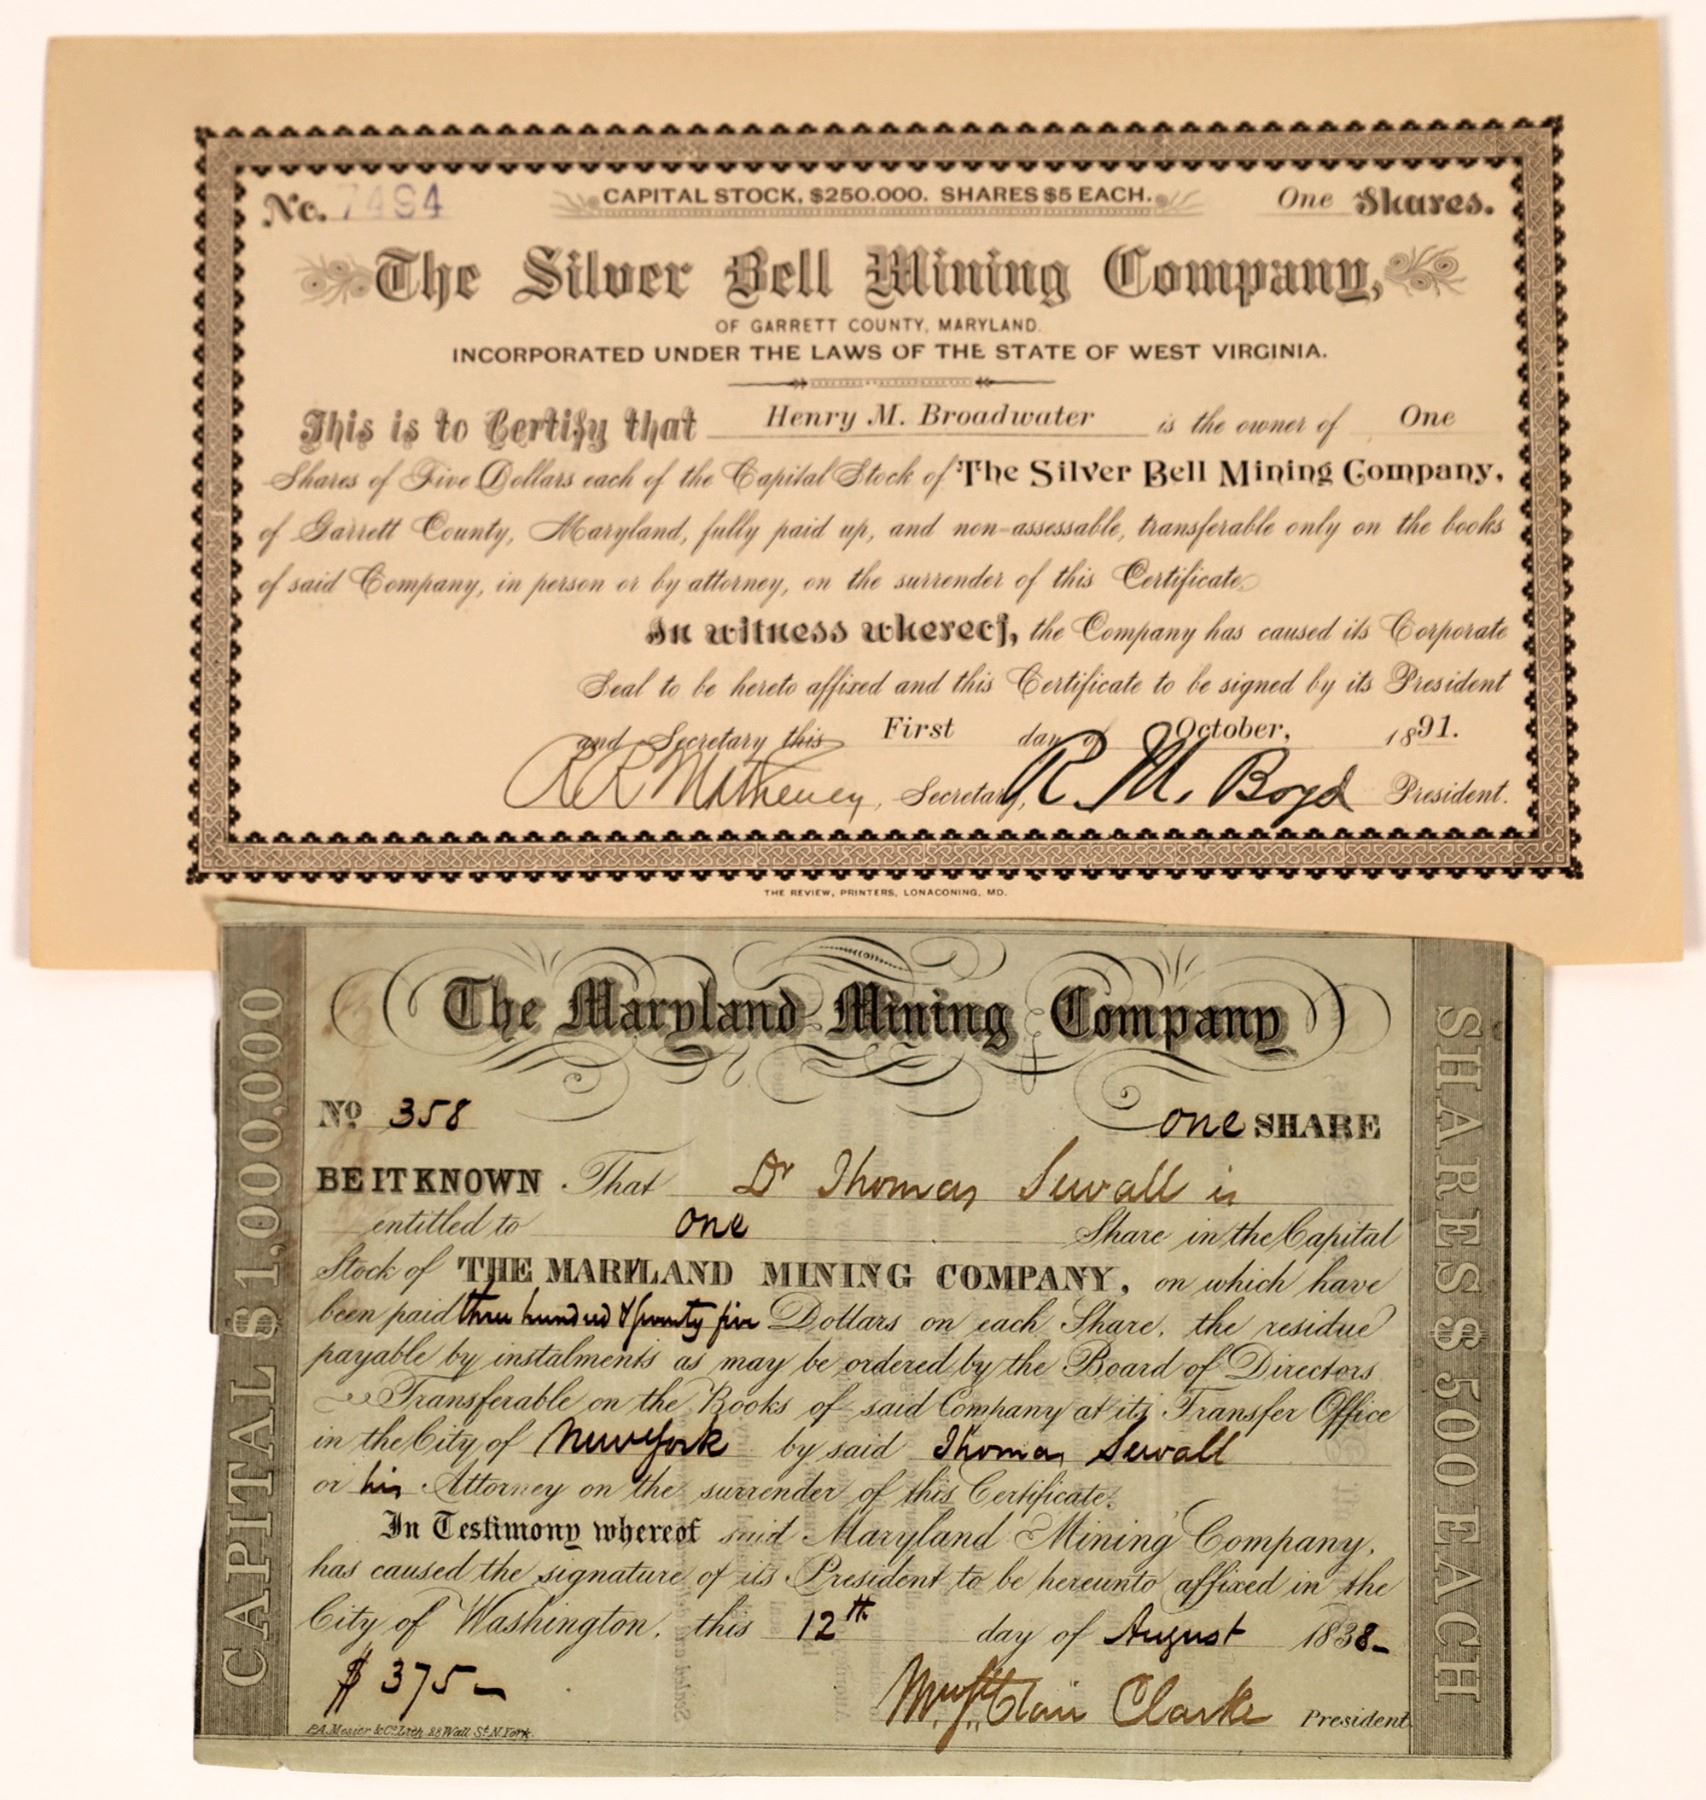 No. 7494
CAPITAL STOCK, $250.000. SHARES $5 EACH.
One Shares.
The Silver Bell Mining Company,
OF GARRETT COUNTY, MARYLAND.
INCORPORATED UNDER THE LAWS OF THE STATE OF WEST VIRGINIA.
This is to Certify that Henry M. Broadwater is the owner of One
Shares of Five Dollars each of the Capital Stock of The Silver Bell Mining Company,
of Garrett County, Maryland, fully paid up, and non-assessable, transferable only on the books
of said Company, in person or by attorney, on the surrender of this Certificate.
In witness whereof, the Company has caused its Corporate
Seal to be hereto affixed and this Certificate to be signed by its President
and Secretary this First day of October, 1891.
R R Matheney, Secretary, R. M. Boyd President.
THE REVIEW, PRINTERS, LONACONING, MD.
CAPITAL $1,000,000
The Maryland Mining Company
No 358
one SHARE
BE IT KNOWN That Dr Thomas Sewall is
entitled to one Share in the Capital
Stock of THE MARYLAND MINING COMPANY, on which have
been paid three hundred & seventy five Dollars on each Share, the residue
payable by instalments as may be ordered by the Board of Directors
Transferable on the Books of said Company at its Transfer Office
in the City of New York by said Thomas Sewall
or his Attorney on the surrender of this Certificate.
In Testimony whereof said Maryland Mining Company,
has caused the signature of its President to be hereunto affixed in the
City of Washington, this 12th day of August 1838-
$375-
Mw StClair Clarke President
P.A. Mesier & Co. Lith 28 Wall St. N. York.
SHARES $500 EACH